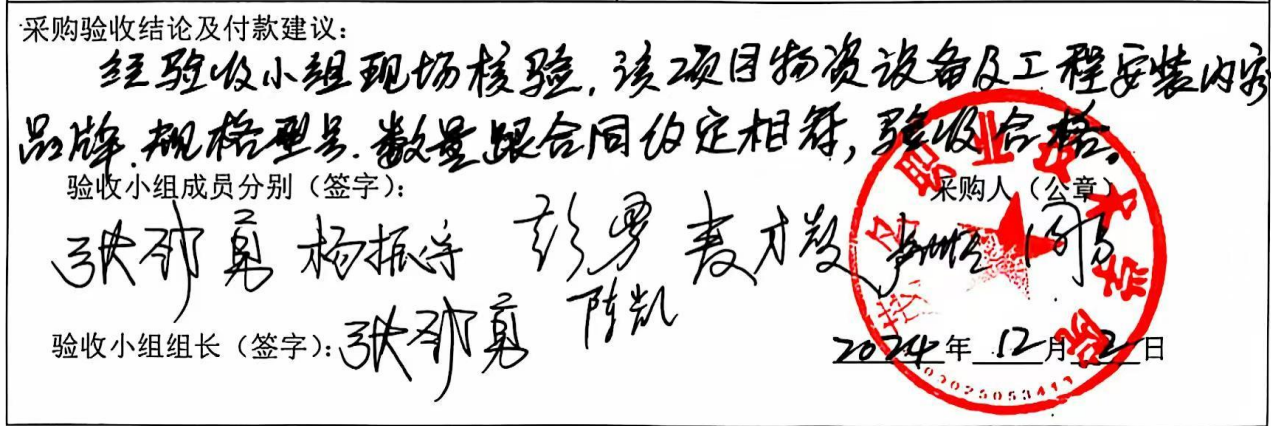 采购验收结论及付款建议：
经验收小组现场核验，该项目物资设备及工程安装内容
品牌、规格型号、数量跟合同约定相符，验收合格。
验收小组成员分别（签字）： 采购人（公章）
杨振宇 彭勇
陈凯
验收小组组长（签字）：
2024年12月2日